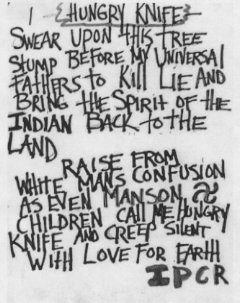 I {HUNGRY KNIFE}
SWEAR UPON THIS TREE
STUMP BEFORE MY UNIVERSAL
FATHERS to KILL LIE AND
BRING the SPIRIT OF the
INDIAN BACK to the
LAND
RAISE FROM
WHITE MANS CONFUSION
AS EVEN MANSON
CHILDREN CALL ME HUNGRY
KNIFE AND CREEP SILENT
WITH LOVE FOR EARTH
IPCR